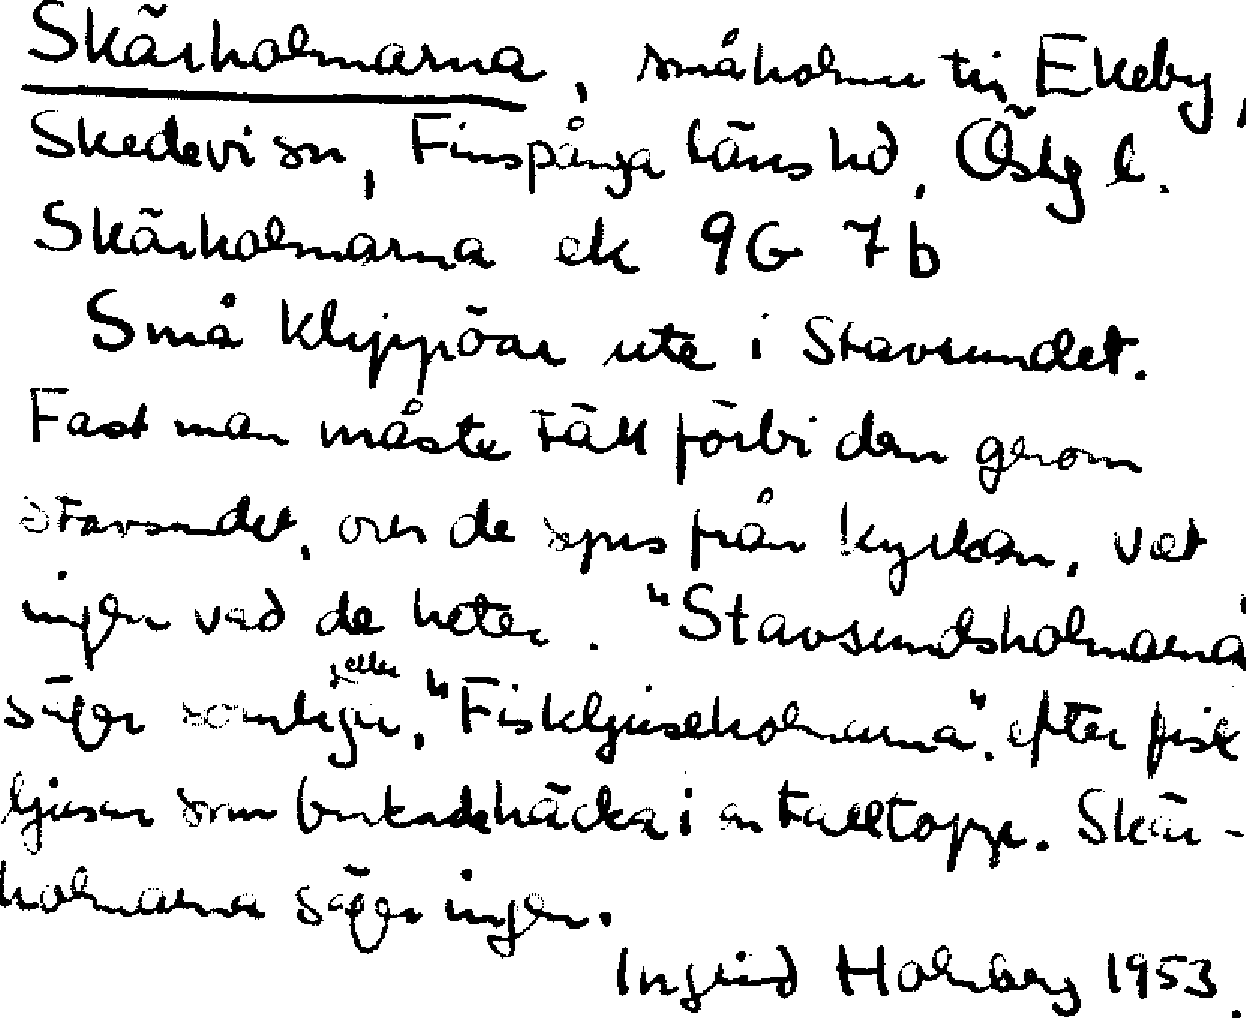 Skärholmarna, småholmar till Ekeby,
Skedevi sn, Finspånga läns hd, Östg l.
Skärholmarna ek 9G 7b
Små klippöar ute i Stavsundet.
Fast man måste tätt förbi dem genom
Stavsundet, och de syns från kyrkan, vet
ingen vad de heter. "Stavsundsholmarna"
säger somliga, eller "Fiskljuseholmarna" efter fisk
ljusen som brukade häcka i en talltopp. Skär-
holmarna säger ingen.
Ingrid Holmberg 1953.